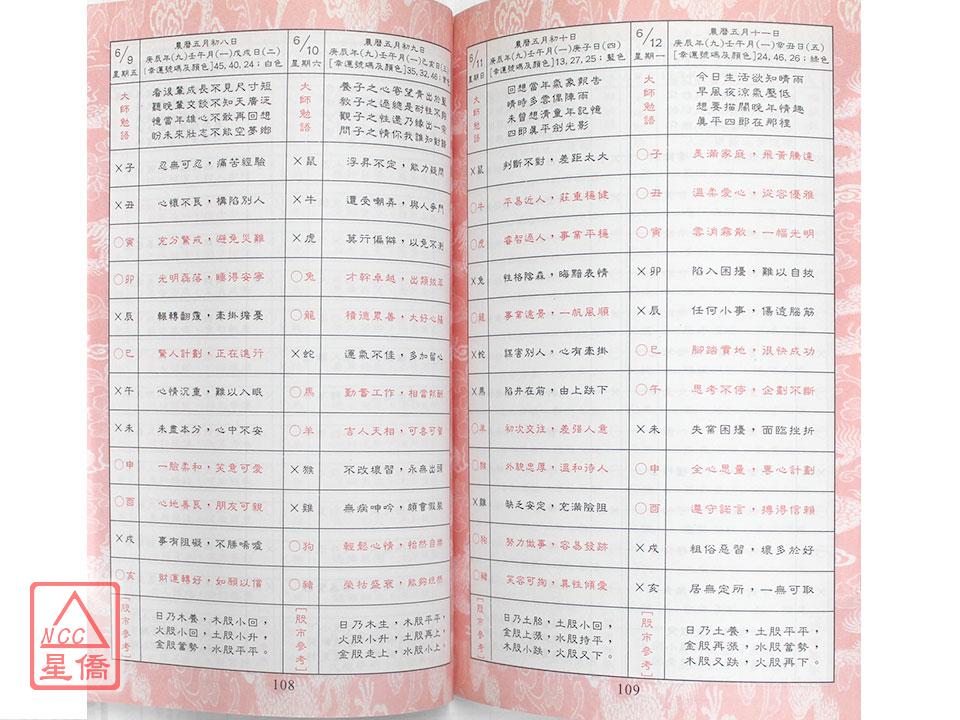 6/9
星期五
農曆五月初八日
庚辰年(九)壬午月(一)戊戌日(二)
[幸運號碼及顏色]45,40,24;白色
大師勉語
看淡輩成長不見尺寸短
聽晚輩交談不知天廣泛
憶當年雄心不敢再回想
盼未來壯志不能空夢鄉
×子 忍無可忍,痛苦經驗
×丑 心懷不良,構陷別人
○寅 充分警戒,避免災難
○卯 光明磊落,睡得安寧
×辰 輾轉翻覆,牽掛擔憂
○巳 驚人計劃,正在進行
×午 心情沉重,難以入眠
×未 未盡本分,心中不安
○申 一臉柔和,笑意可愛
○酉 心地善良,朋友可親
×戌 事有阻礙,不勝唏噓
○亥 財運轉好,如願以償
[股市參考]
日乃木養,木股小回,
火股小回,土股小升,
金股當勢,水股平平。
6/10
星期六
農曆五月初九日
庚辰年(九)壬午月(一)己亥日(三)
[幸運號碼及顏色]35,32,46;
大師勉語
養子之心寄青出於藍
教子之過總是耐性不夠
觀子之性還乃緣出一家
問子之情你我誰知對錯
×鼠 浮昇不定,能力疑問
×牛 遭受嘲弄,與人爭鬥
×虎 莫行偏僻,以免不利
○兔 才幹卓越,出類拔萃
○龍 積德累善,大好心腸
×蛇 運氣不佳,多加留心
○馬 勤奮工作,相當報酬
○羊 吉人天相,可喜可賀
×猴 不改壞習,永無出頭
×雞 無病呻吟,頗會假裝
○狗 輕鬆心情,怡然自樂
○豬 榮枯盛衰,能夠坦然
[股市參考]
日乃木生,木股平平,
火股小升,土股再上,
金股走上,水股小上。
108
6/11
星期日
農曆五月初十日
庚辰年(九)壬午月(一)庚子日(四)
[幸運號碼及顏色]13,27,25;藍色
大師勉語
回想當年氣象報告
晴時多雲偶陣雨
未曾想清童年記憶
四郎真平劍光影
×鼠 判斷不對,差距太大
○牛 平易近人,莊重穩健
○虎 睿智過人,事業平穩
×兔 性格陰森,晦黯表情
○龍 事業遠景,一帆風順
×蛇 謀害別人,心有牽掛
×馬 陷井在前,由上跌下
○羊 初次交往,差強人意
○猴 外貌忠厚,溫和待人
×雞 缺乏安定,充滿險阻
○狗 努力做事,容易發跡
○豬 笑容可掬,異性傾愛
[股市參考]
日乃土胎,土股小回,
金股上漲,水股持平,
木股小跌,火股又下。
6/12
星期一
農曆五月十一日
庚辰年(九)壬午月(一)辛丑日(五)
[幸運號碼及顏色]24,46,26;綠色
大師勉語
今日生活欲知晴雨
早風夜涼氣壓低
想要描闊晚年情趣
真平四郎在那裡
○子 美滿家庭,飛黃騰達
○丑 溫柔愛心,從容優雅
○寅 雲消霧散,一幅光明
×卯 陷入困擾,難以自拔
×辰 任何小事,傷透腦筋
○巳 腳踏實地,很快成功
○午 思考不停,企劃不斷
×未 失業困擾,面臨挫折
○申 全心思量,專心計劃
○酉 遵守諾言,摶得信賴
×戌 粗俗惡習,壞多於好
×亥 居無定所,一無可取
[股市參考]
日乃土養,土股平平,
金股再漲,水股當勢,
木股又跌,火股再下。
109
NCC
星僑